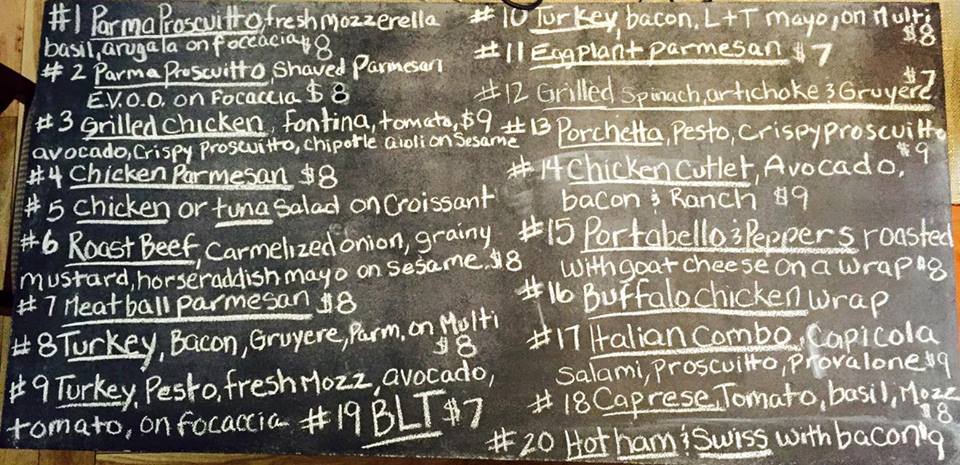 #1 Parma Proscuitto, fresh Mozzerella
basil, arugala on foccacia $8
#2 Parma Proscuitto, Shaved Parmesan
E.V.O.O. on Focaccia $8
#3 Grilled Chicken, Fontina, tomato, $9
avocado, Crispy Proscuitto, chipotle aioli on Sesame
#4 Chicken Parmesan $8
#5 Chicken or tuna Salad on Croissant
#6 Roast Beef, Carmelized onion, grainy
mustard, horseraddish mayo on Sesame $8
#7 Meatball parmesan $8
#8 Turkey, Bacon, Gruyere, Parm, on Multi
$8
#9 Turkey, Pesto, fresh Mozz, avocado,
tomato, on Focaccia
#19 BLT $7
#10 Turkey, bacon, L+T mayo, on Multi
$8
#11 Eggplant parmesan $7
$7
#12 Grilled Spinach, artichoke & Gruyere
#13 Porchetta, Pesto, Crispy proscuitto
$9
#14 Chicken Cutlet, Avocado,
bacon & Ranch $9
#15 Portabello & Peppers roasted
with goat cheese on a wrap $8
#16 Buffalo chicken wrap
#17 Italian Combo, Capicola
Salami, Proscuitto, Provalone $9
#18 Caprese, Tomato, basil, Mozz
$8
#20 Hot ham & Swiss with bacon $9